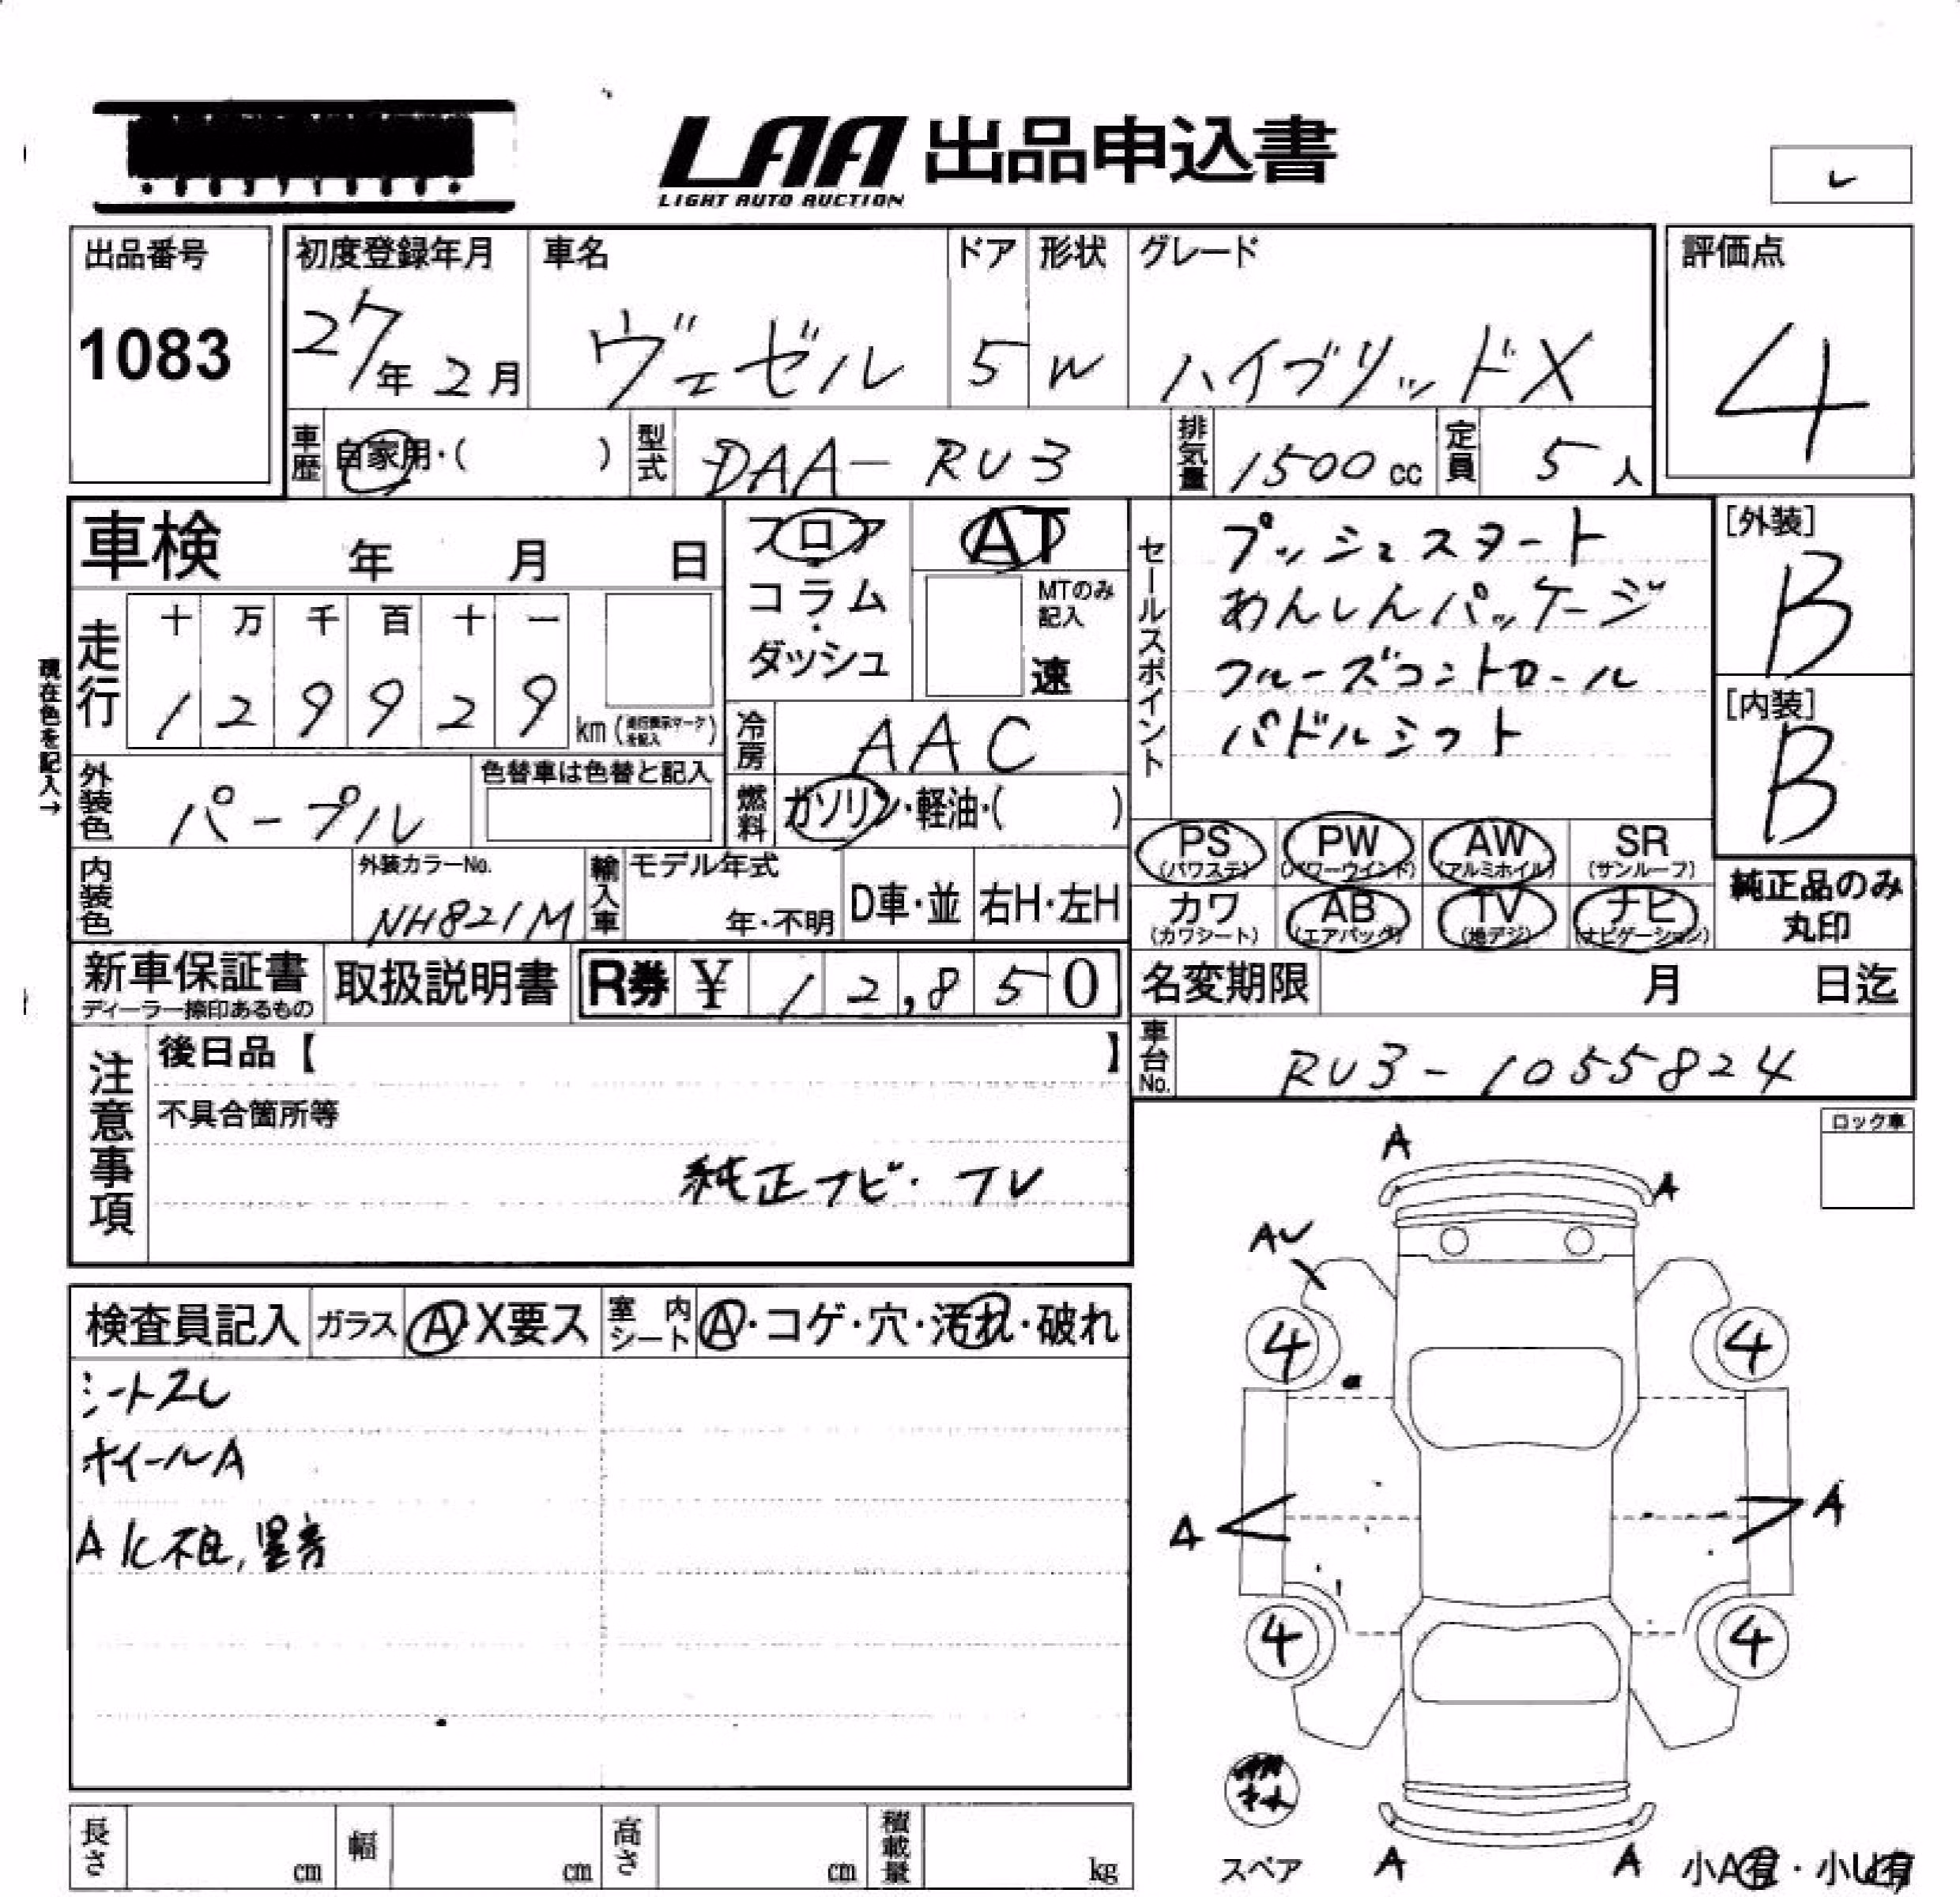 LAA 出品申込書
LIGHT AUTO AUCTION
レ
出品番号
1083
初度登録年月
27年 2月
車名
ヴェゼル
ドア
5
形状
W
グレード
ハイブリッドX
評価点
4
車歴 自家用・( )
型式 DAA-RU3
排気量 1500cc
定員 5人
車検 年 月 日
フロア
コラム
・
ダッシュ
AT
MTのみ
記入
速
セールスポイント
プッシュスタート
あんしんパッケージ
クルーズコントロール
パドルシフト
[外装]
B
[内装]
B
現在色を記入→
走行
十 万 千 百 十 一
1 2 9 9 2 9 km
冷房 AAC
外装色 パープル
色替車は色替と記入
燃料 ガソリン・軽油・( )
内装色
外装カラーNo.
NH821M
輸入車
モデル年式
年・不明
D車・並
右H・左H
PS (パワステ)
PW (パワーウインド)
AW (アルミホイル)
SR (サンルーフ)
カワ (カワシート)
AB (エアバック)
TV (地デジ)
ナビ (ナビゲーション)
純正品のみ
丸印
新車保証書
ディーラー捺印あるもの
取扱説明書
R券 ¥ 12,850
名変期限 月 日迄
車台No. RU3-1055824
注意事項
後日品【 】
不具合箇所等
純正ナビ・TV
ロック車
検査員記入
ガラス A・X要ス
室内シート A・コゲ・穴・汚れ・破れ
シートスレ
ホイールA
AC不良,異音
A
A
AU
4 4
A A
4 4
スペア
A A
小A有・小U有
長さ cm
幅 cm
高さ cm
積載量 kg